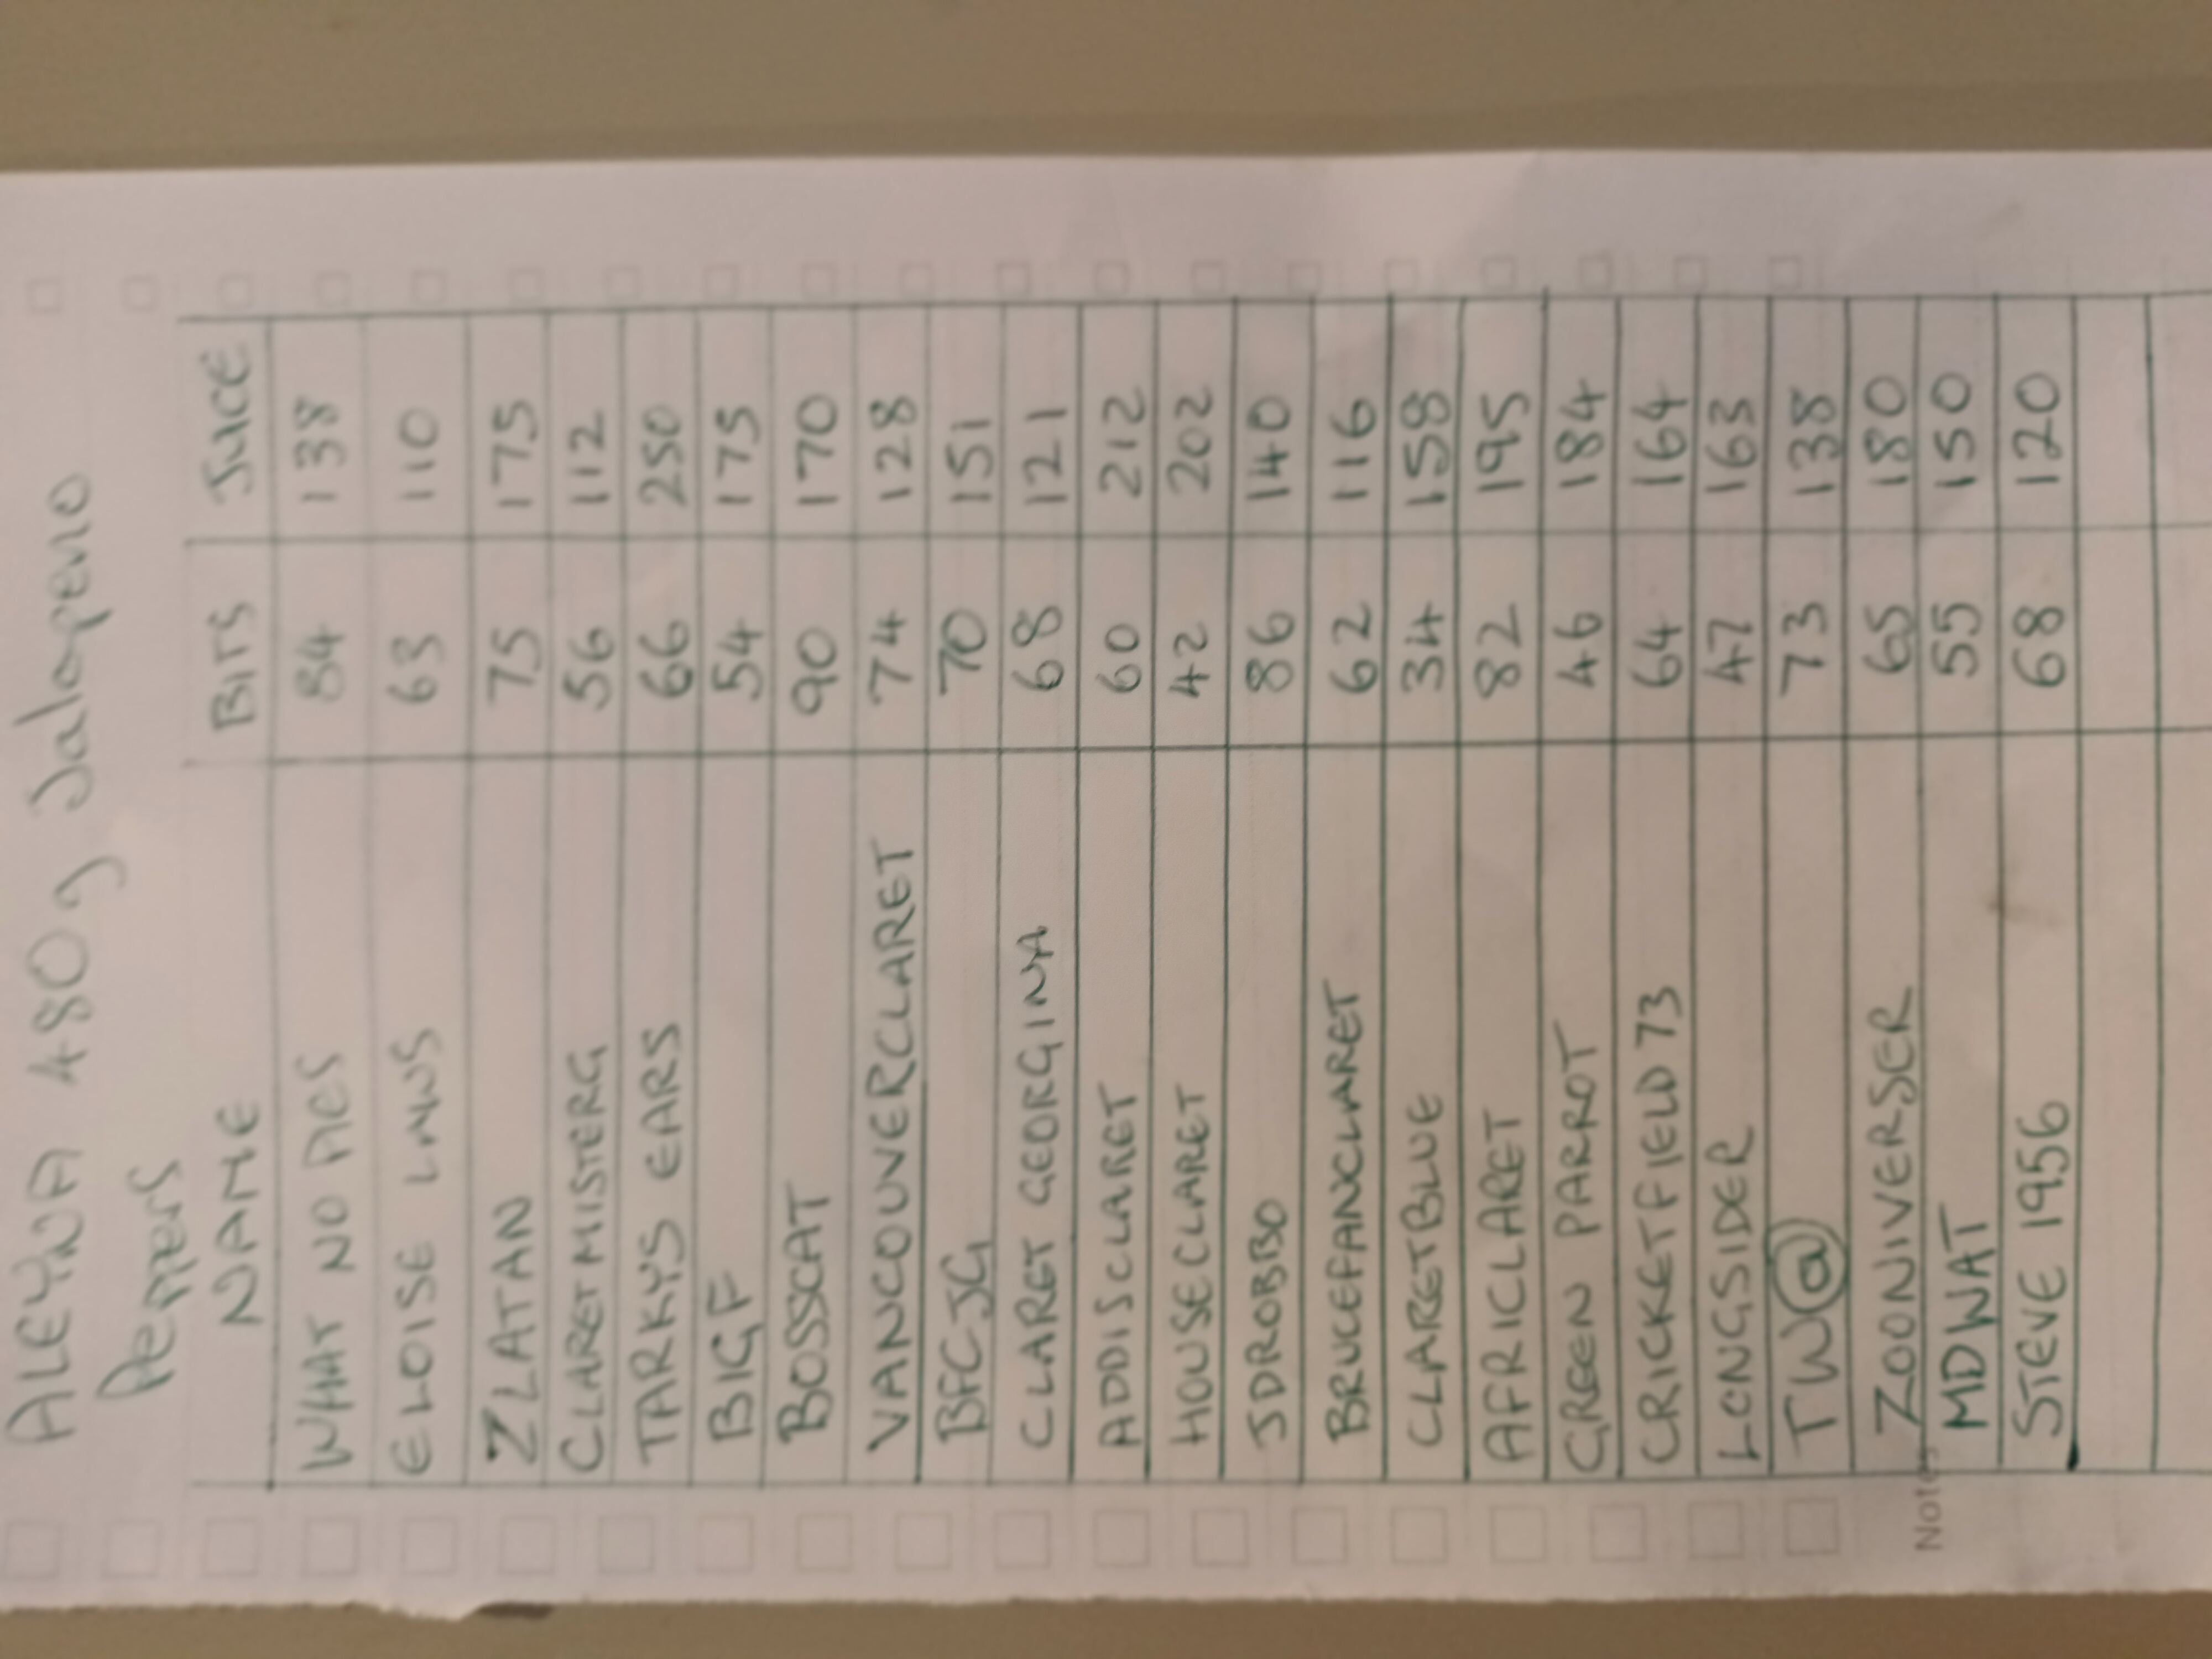 ALEYNA 480g Jalapeno
Peppers
NAME BITS JUICE
WHAT NO PIES 84 138
ELOISE LAWS 63 110
ZLATAN 75 175
CLARETMISTERG 56 112
TARKYS EARS 66 250
BIGF 54 175
BOSSCAT 90 170
VANCOUVERCLARET 74 128
BFCJG 70 151
CLARET GEORGINA 68 121
ADDISCLARET 60 212
HOUSECLARET 42 202
JDROBBO 86 140
BRUCEFANCLARET 62 116
CLARETBLUE 34 158
AFRICLARET 82 195
GREEN PARROT 46 184
CRICKETFIELD73 64 164
LONGSIDER 47 163
TW@ 73 138
ZOONIVERSER 65 180
MDWAT 55 150
STEVE 1956 68 120
Notes